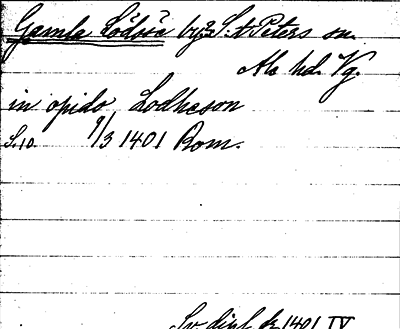 Gamla Lödöse by, S:t Peters sn.
Ale hd. Vg.
in opido Lodheson
S.10. 9/3 1401 Rom.
Sv dipl fr 1401 IV